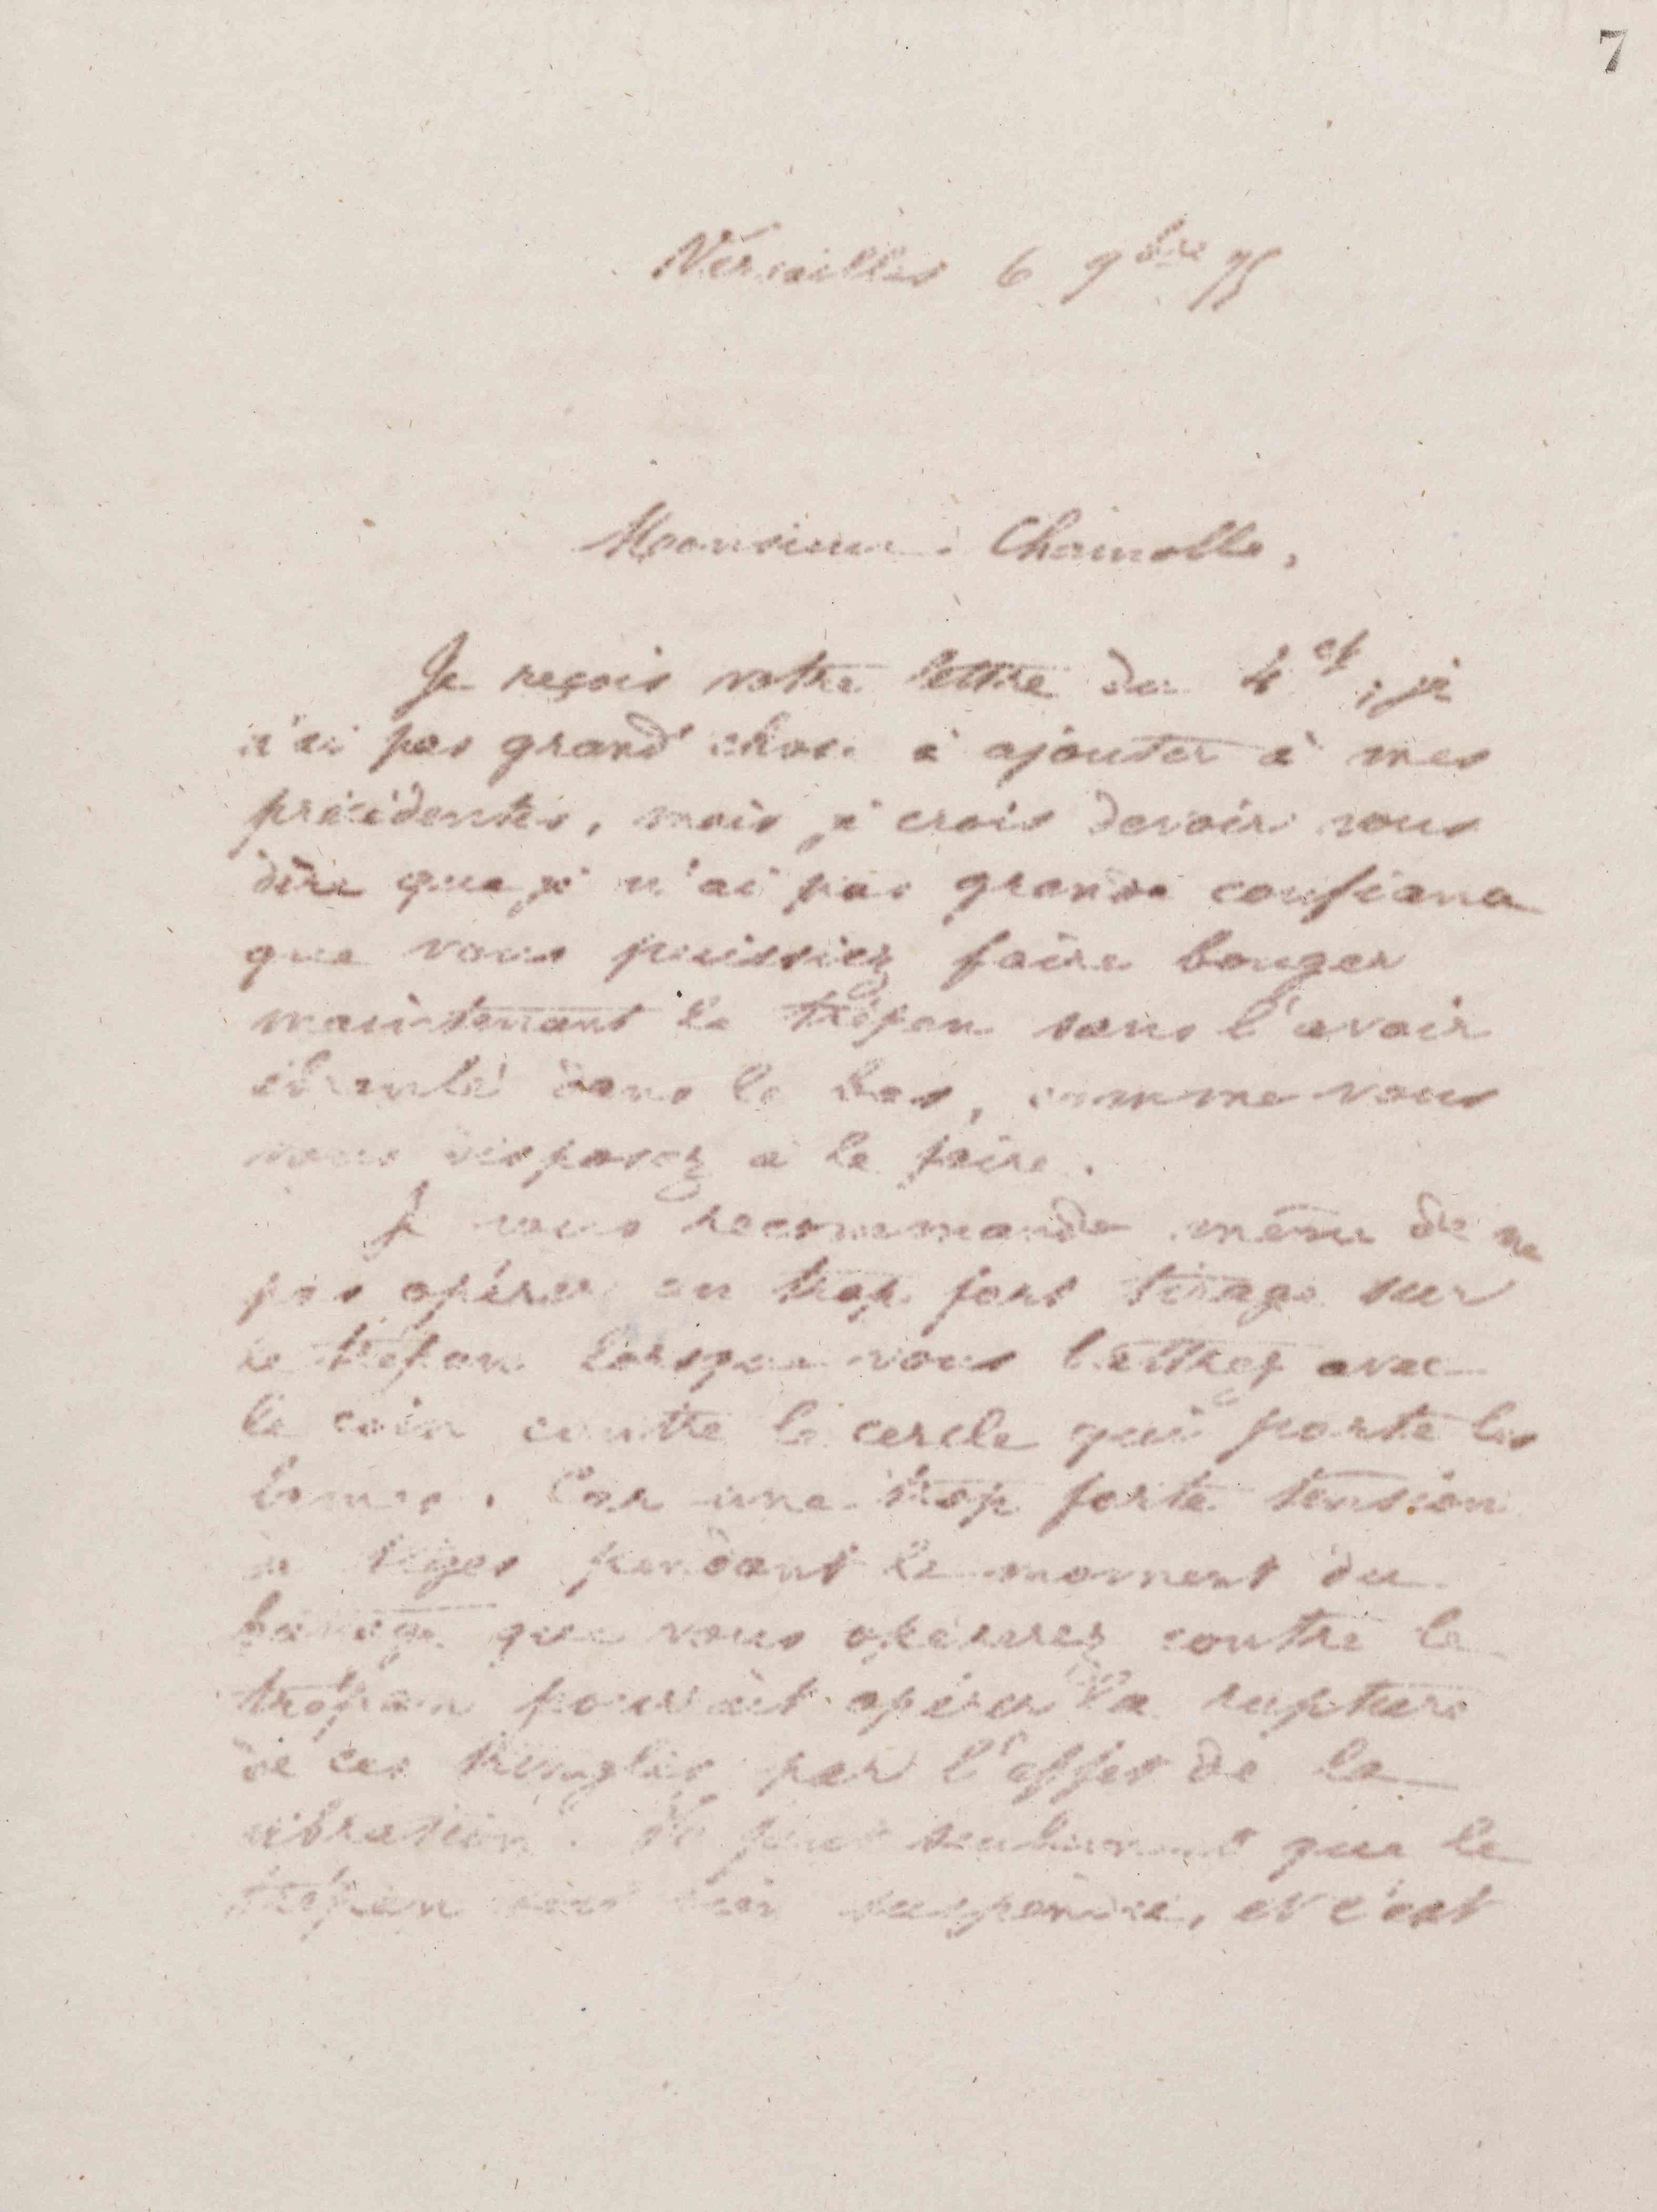 7
Versailles 6 9bre 75
Monsieur Chamolle,
Je reçois votre lettre du 4 ct ; je
n'ai pas grand' chose à ajouter à mes
précédentes, mais je crois devoir vous
dire que je n'ai pas grande confiance
que vous puissiez faire bouger
maintenant le trépan sans l'avoir
ébranlé dans le bas, comme vous
vous disposez à le faire.
Je vous recommande même de ne
pas opérer un trop fort tirage sur
le trépan lorsque vous battrez avec
le coin contre le cercle qui porte les
lames. Car une trop forte tension
de tiges pendant le moment du
battage que vous opérerez contre le
trépan pourrait opérer la rupture
de ces tringles par l'effet de la
vibration. Il faut seulement que le
trépan soit bien suspendu, et c'est